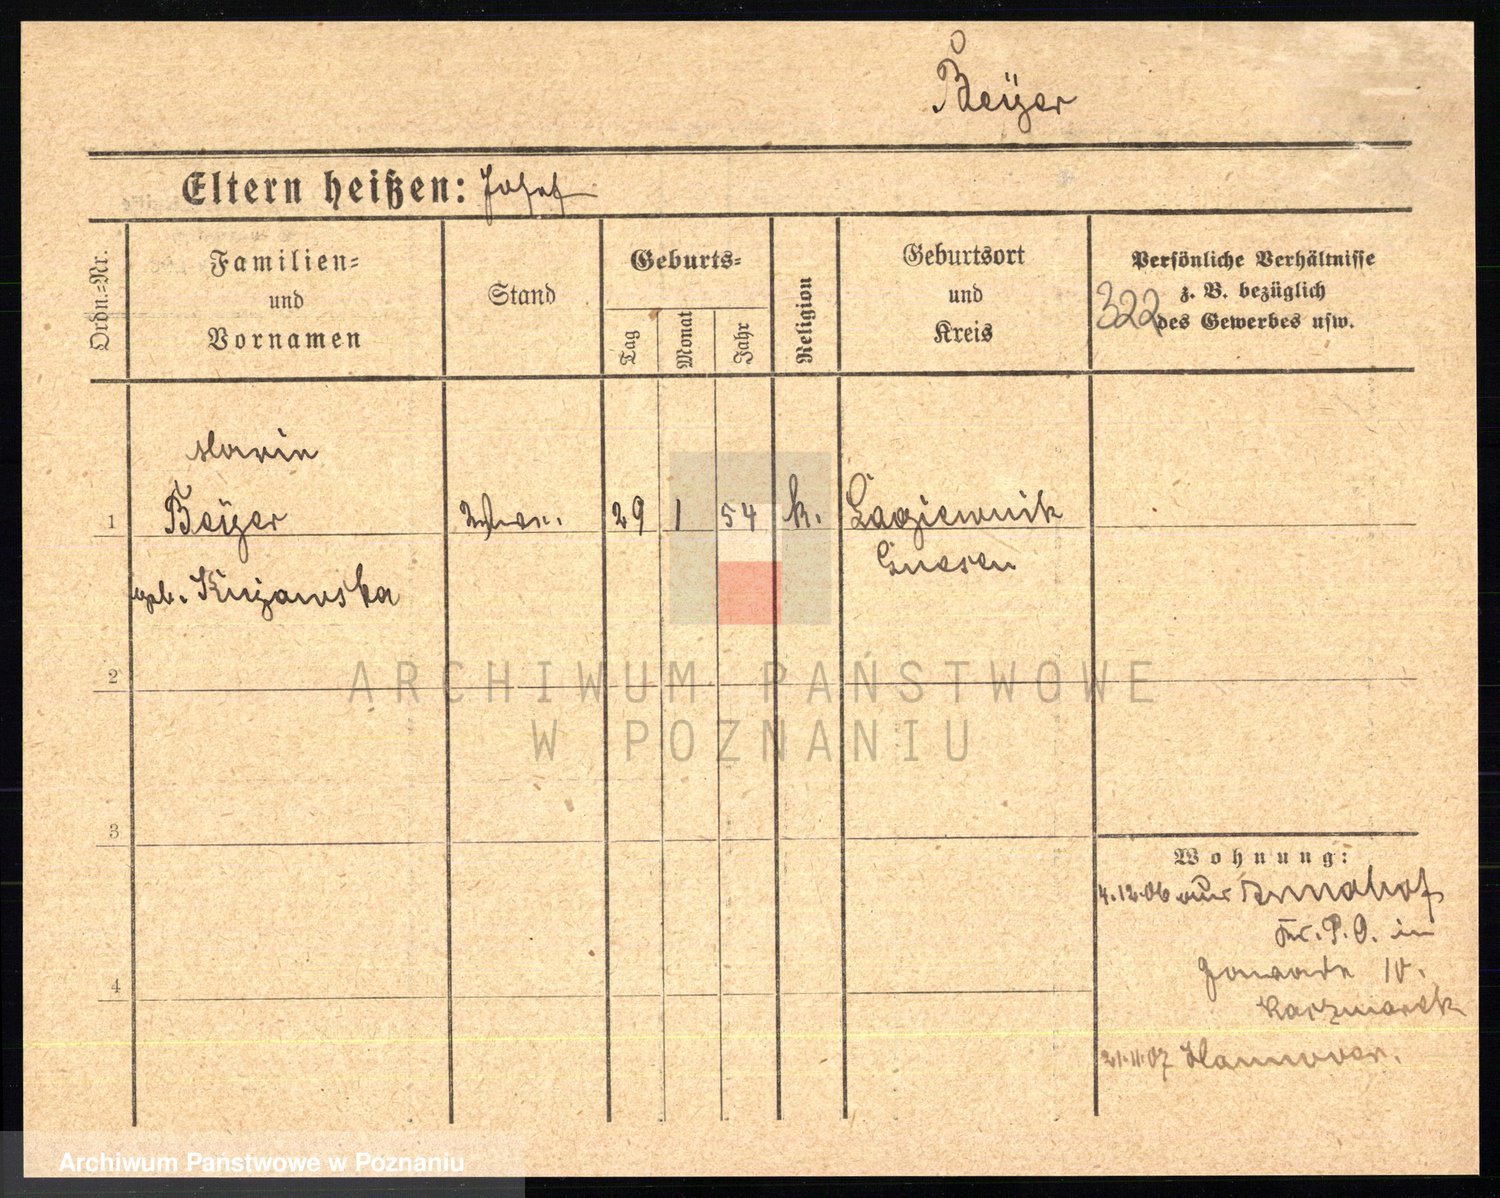 Beÿer
Eltern heißen: Josef
Ordn.=Nr.
Familien=
und
Vornamen
Stand
Geburts=
Tag
Monat
Jahr
Religion
Geburtsort
und
Kreis
Persönliche Verhältnisse
z. B. bezüglich
des Gewerbes usw.
322
Marie
1 Beÿer 29 1 54 k. Lagiewnik
Gnesen
geb. Kujawska
2
3
4
Wohnung:
4.12.06 aus Annahof
Kr. P. O. in
10.
Kaczmarek
21.11.07 Hannover.
ARCHIWUM PAŃSTWOWE
W POZNANIU
Archiwum Państwowe w Poznaniu